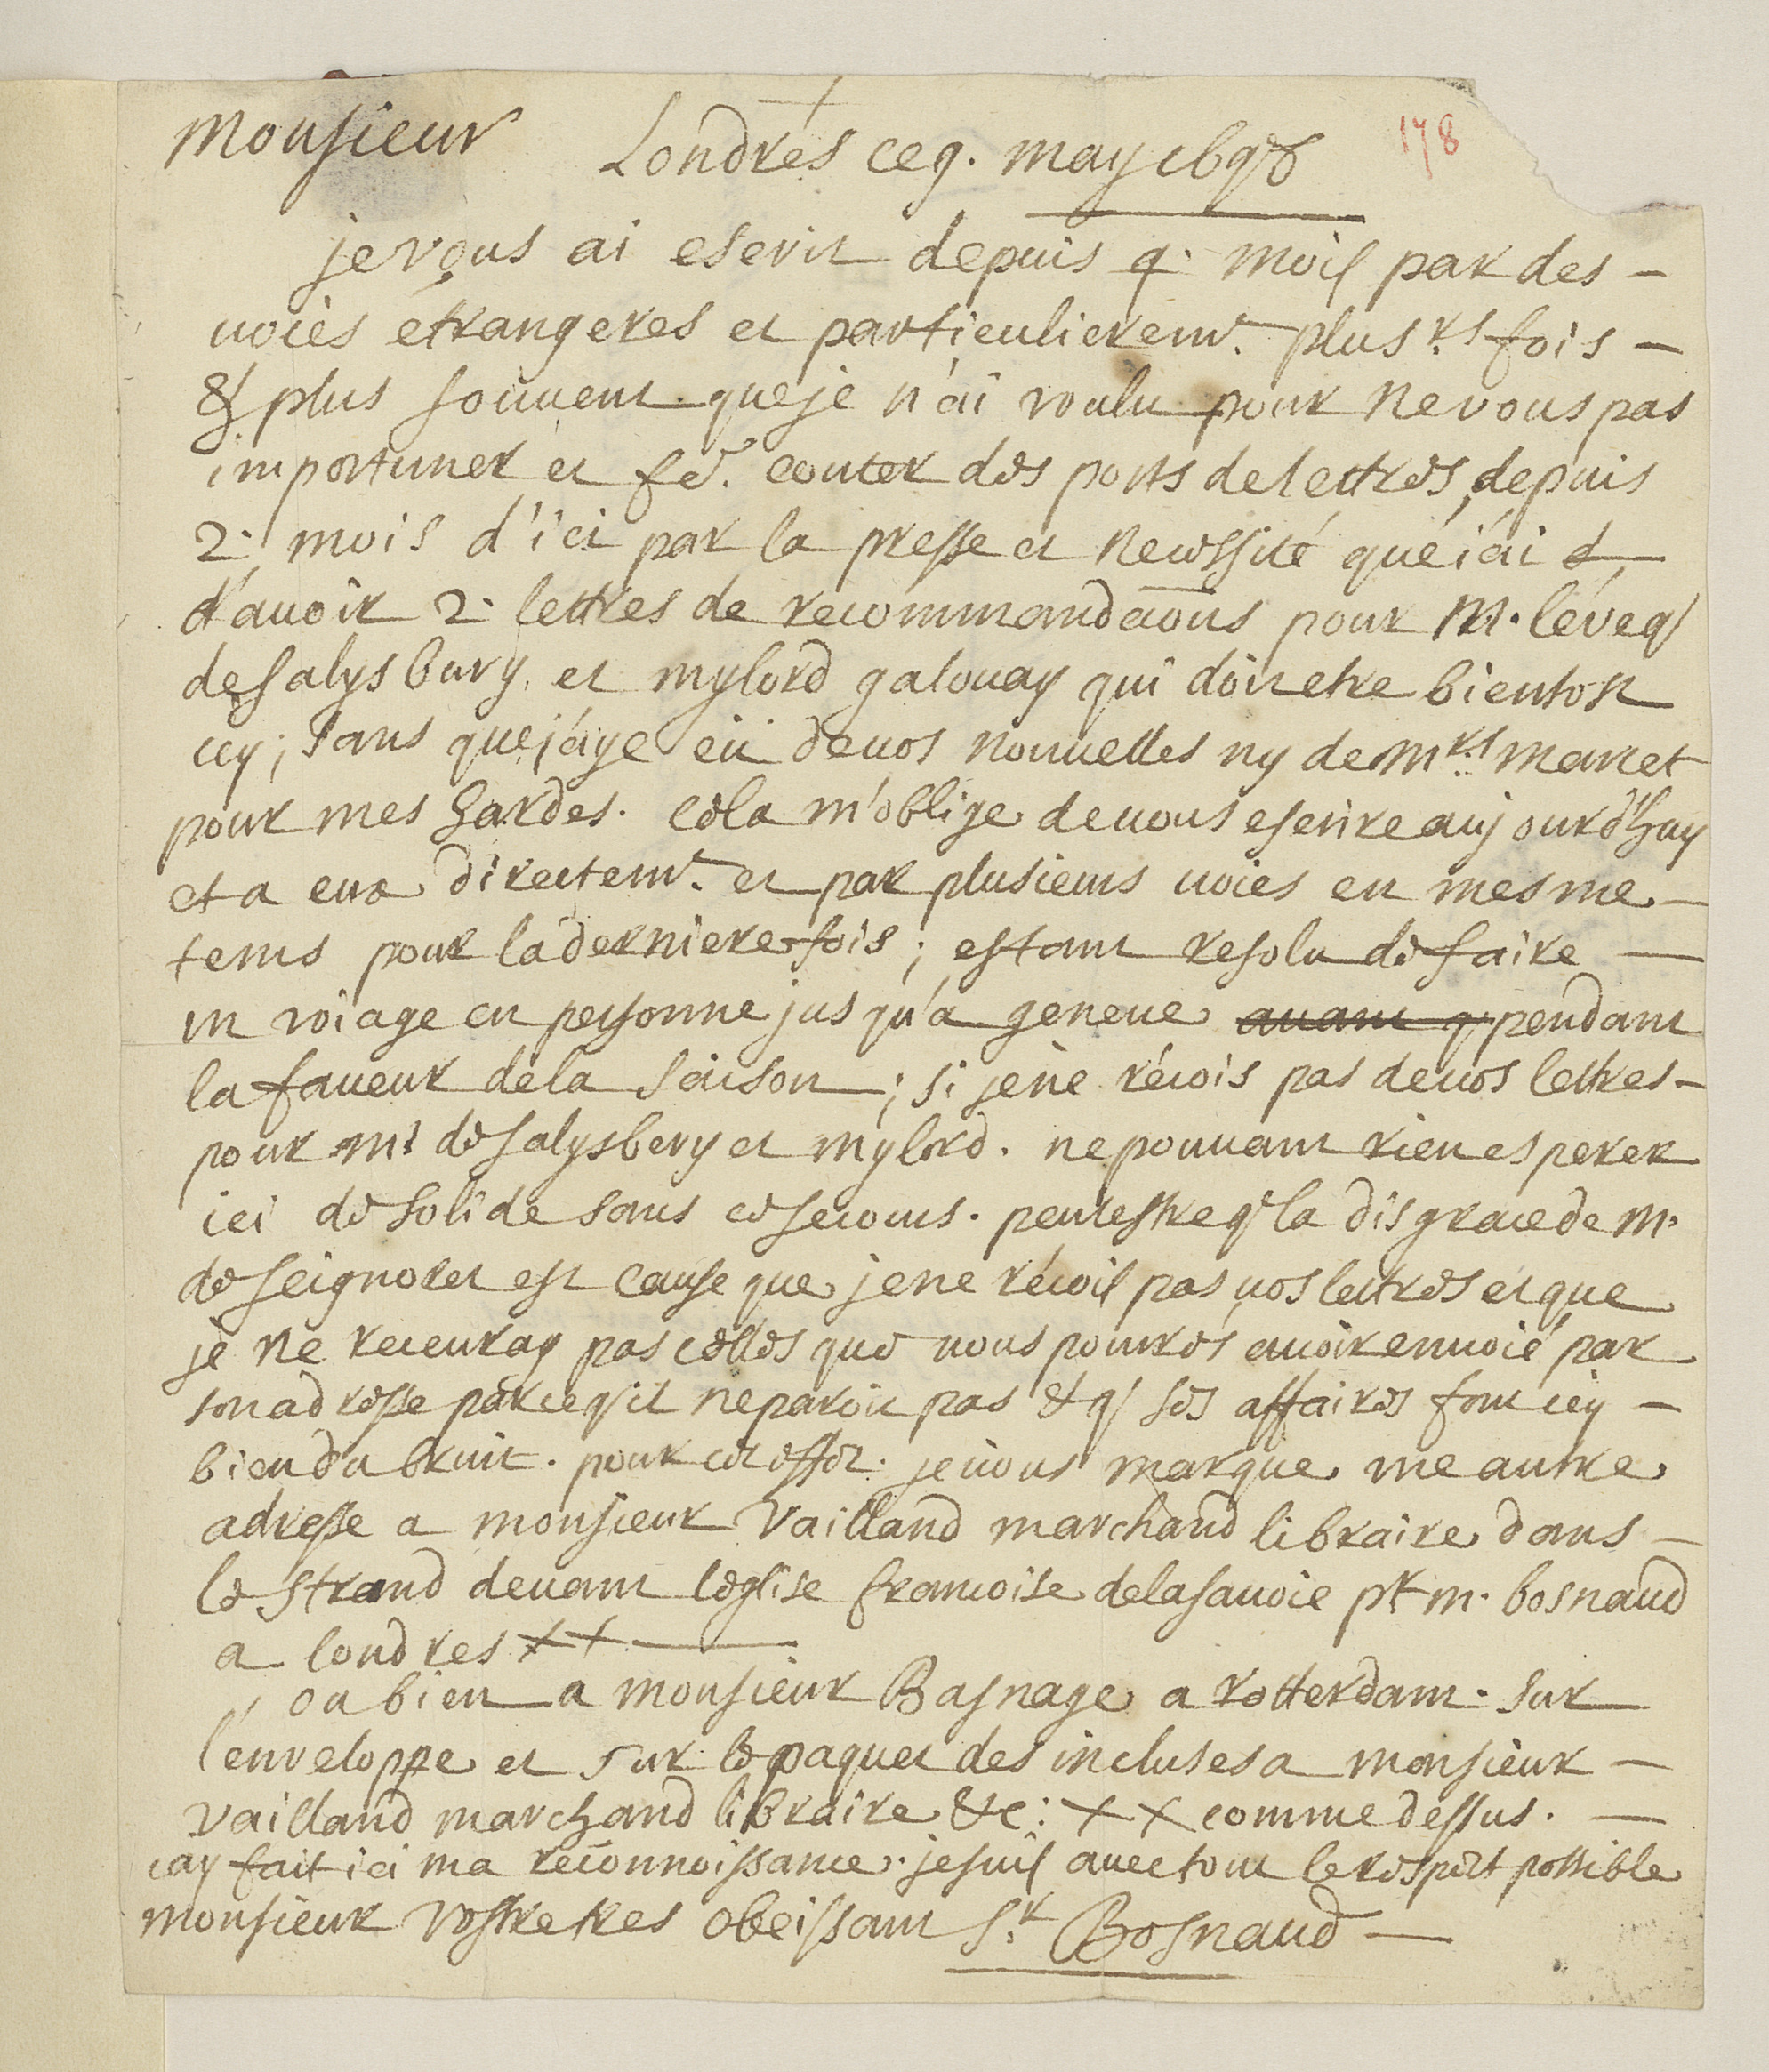 Monsieur
Londres ce 9. may 1698
178
je vous ai escrit depuis 4. mois par des
uoies etrangeres et particulierem.t plus.rs fois
& plus souuent que je n'ai voulu pour ne vous pas
importuner et couter des ports de lettres, depuis
2. mois d'ici par la presse et necessité que j'ai
d'auoir 2. lettres de recommandaōns pour M. l'eveq
de salysbury et mylord galouay qui doiuet etre bientost
icy; sans que j'aye eü de uos nouuelles ny de M.rs manet
pour mes hardes. cela m'oblige de uous escrire aujourd'huy
et a eux directem.t et par plusieurs uoies en mesme
tems pour la derniere fois; estant resolu de faire
un voiage en personne jusqu'a geneue auant q pendant
la faueur de la saison; si je ne recois pas de uos lettres
pour M.r de salysbery et mylord. ne pouuant rien esperer
ici de solide sans ce secours. peutestre q la disgrace de M.
de seignoret est cause que je ne recois pas uos lettres et que
je ne receuray pas celles que uous pourrés auoir enuoié par
son adresse parce q'il ne paroit pas & q ses affaires font icy
bien du bruit. pour cet effet je uous marque une autre
adresse a monsieur Vailland marchand libraire dans
le strand deuant l'eglise francoise de la sauoie p.r m. bosnaud
a londres ++
ou bien a monsieur Basnage a rotterdam. sur
l'enveloppe et sur le paquet des incluses a monsieur
vailland marchand libraire &c: ++ comme dessus.
iay fait ici ma reconnoissance. je suis auec tout le respect possible
monsieur vostre tres obeissant s.r Bosnaud